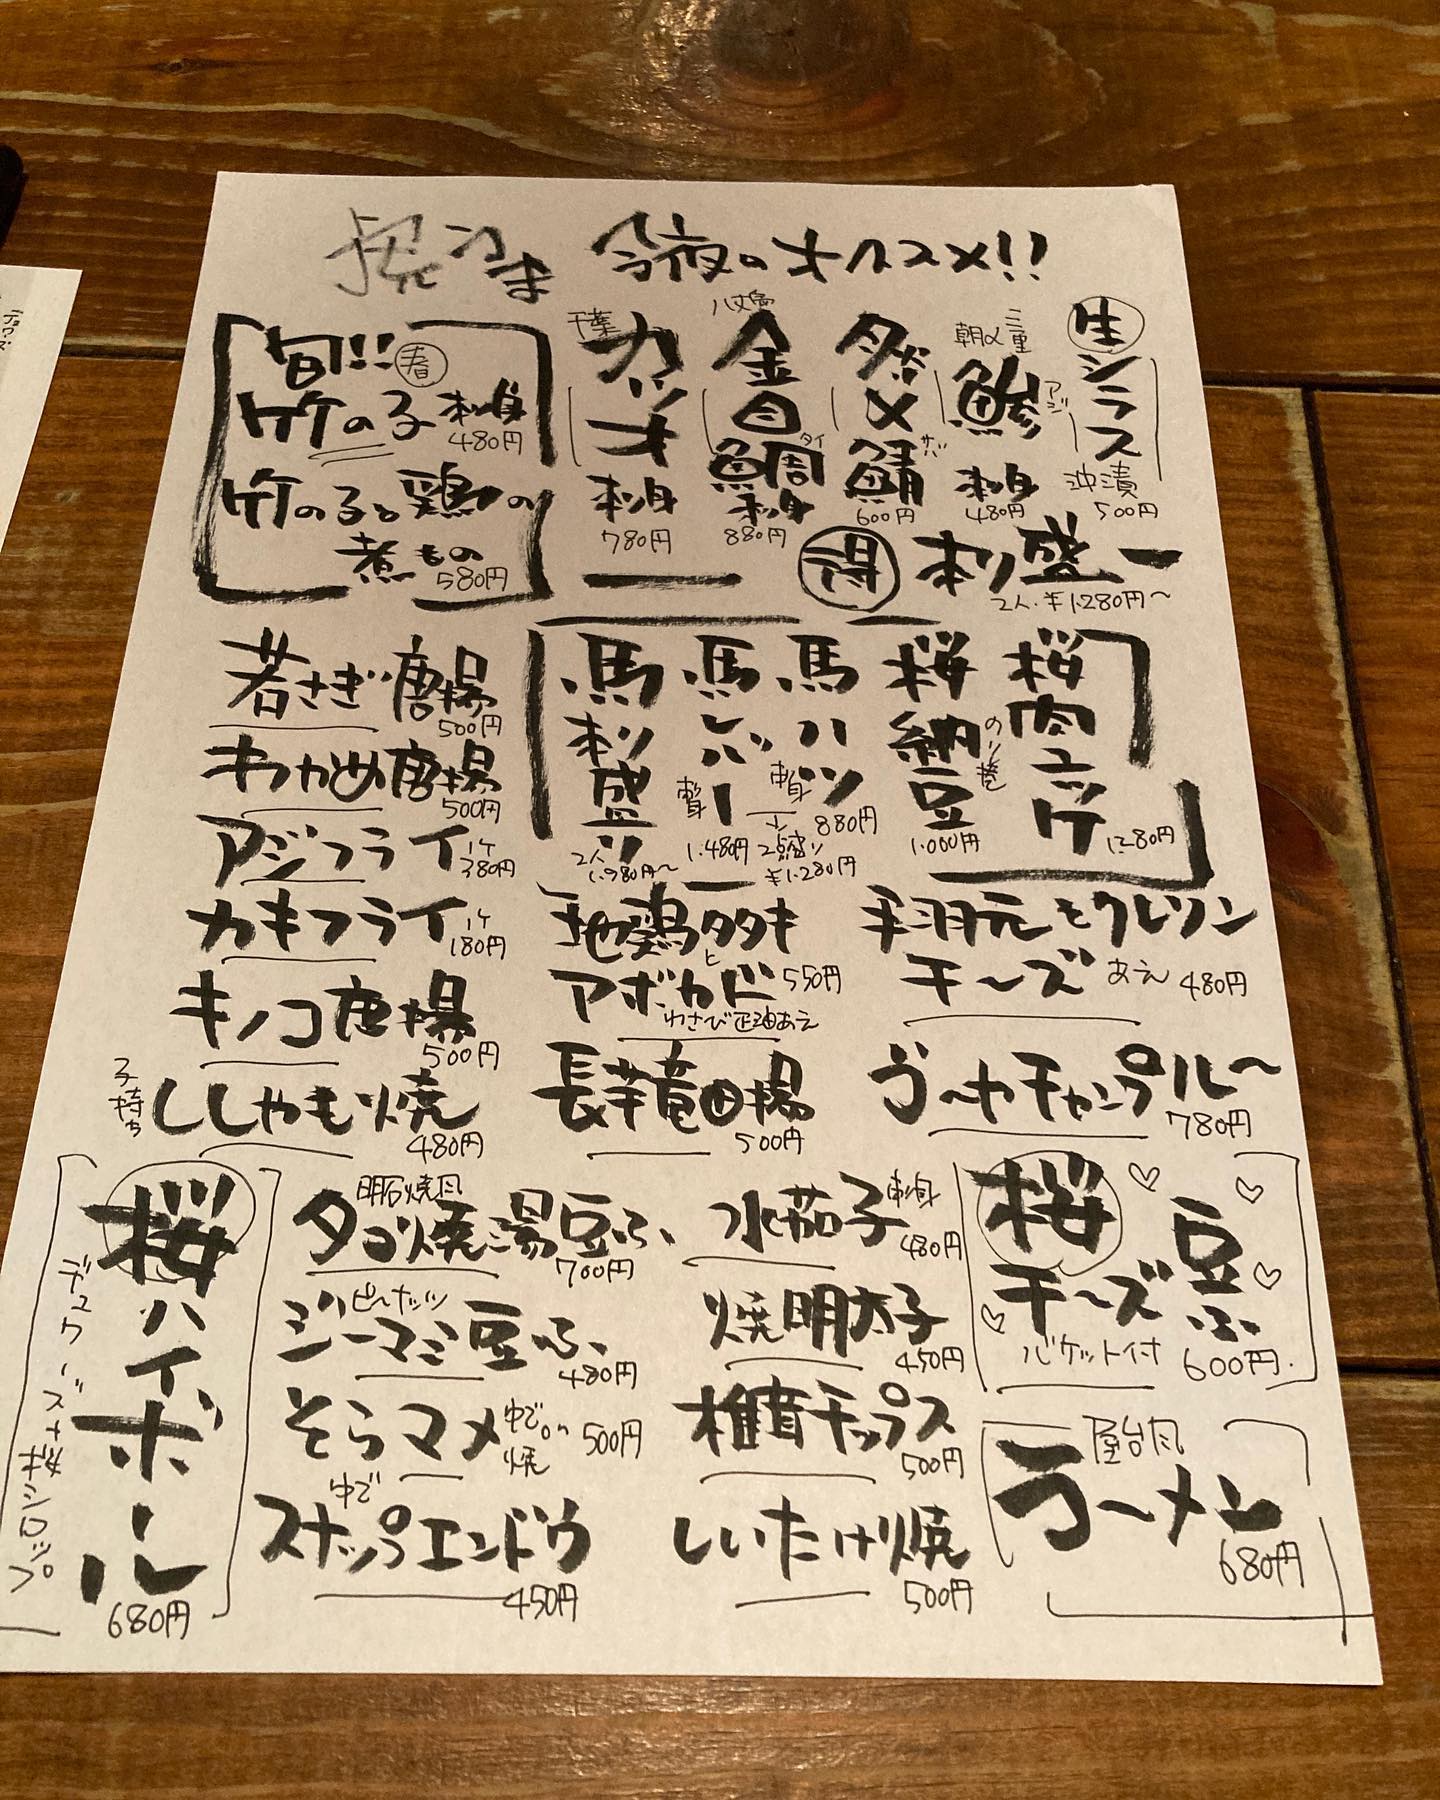 今夜のオススメ!!
生シラス
沖漬
500円
三重
朝〆
鯵
アジ
刺身
480円
〆鯖
サバ
600円
八丈島
金目鯛
タイ
刺身
880円
千葉
カツオ
刺身
780円
旬!!
春
竹の子刺身
480円
竹の子と鶏の
煮もの
580円
得 刺盛一
2人・¥1.280円〜
桜肉ユッケ
1.280円
桜納豆
のり巻
1.000円
馬ハツ
刺身
880円
2点盛り
¥1.280円
馬レバー
刺身
1.480円
馬刺盛り
2人
1.980円〜
若さぎ唐揚
500円
わかめ唐揚
500円
アジフライ
1ケ
380円
カキフライ
1ケ
180円
キノコ唐揚
500円
子持ち
ししゃも焼
480円
地鶏タタキ
と
アボカド
550円
わさび正油あえ
長芋竜田揚
500円
手羽元とクレソン
チーズ あえ 480円
ゴーヤチャンプルー
780円
桜ハイボール
デュワーズ+桜シロップ
680円
明石焼風
タコ焼湯豆ふ
700円
ピーナッツ
ジーマミ豆ふ
480円
そらマメ
ゆでor焼
500円
ゆで
スナップエンドウ
450円
水茄子 刺身
480円
焼明太子
450円
椎茸チップス
500円
しいたけ焼
500円
桜
チーズ豆ふ
バケット付 600円.
屋台風
ラーメン
680円